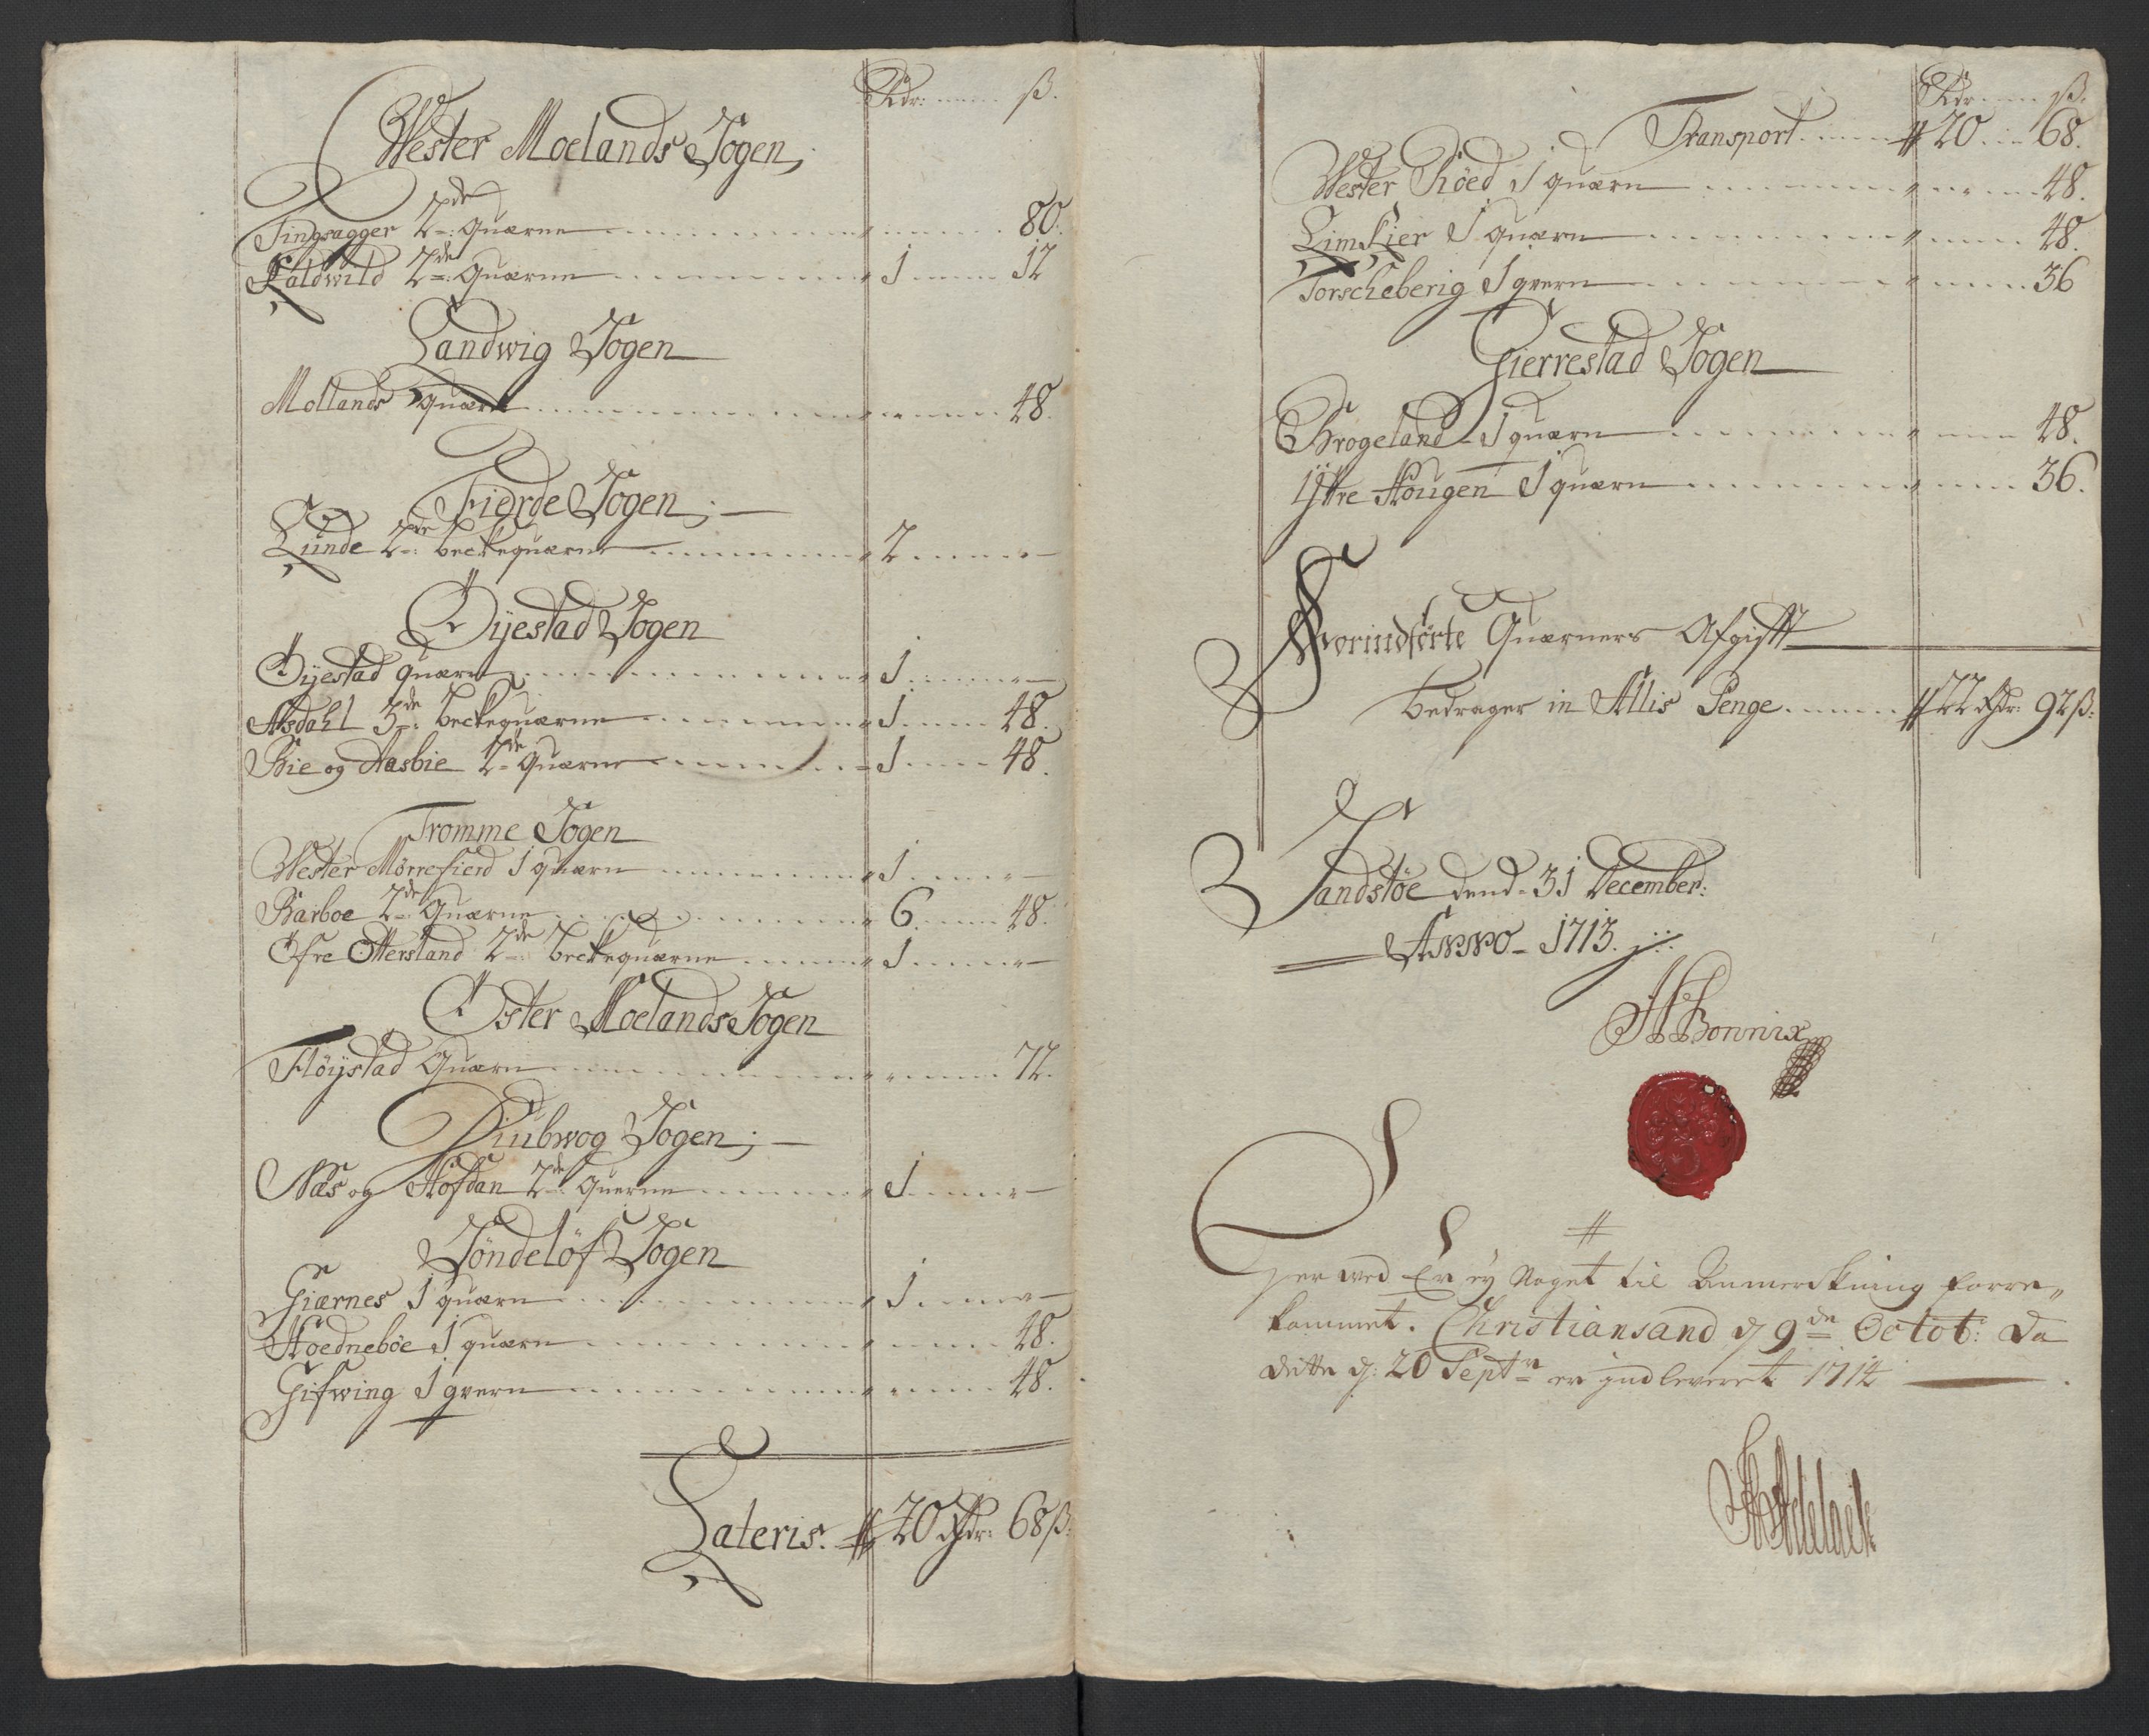 Rdr: ß.
Wester Moelands Sogen,
Tingsagger 2de Quærne 80.
Kaldwild 2de Quærne 1 12
Landwig Sogen
Mollands quærn 48.
Fierde Sogen;
Lunde 2de beckequærne 2
Øijestad Sogen
Øijestad quærn 1
Asdahl 3de beckequærne 1 48.
Bie og Aasbie 2de Quærne 1 48.
Tromme Sogen
Wester Mørrefierd 1 quærn 1
Barboe 2de Quærne 6 48.
Øfre Otterstand 2de beckequærne 1
Øster Moelands Sogen
Fløijstad Quærn 72.
Diubwog Sogen;
Næs og Hofdan 2de Querne 1
Søndeløf Sogen
Giærnes 1 quærn 1
Hoednebøe 1 quærn 48.
Gifwing 1 qvern 48.
Lateris. 20 Rdr: 68 ß:
Rdr ß.
Transport 20 68.
Wester Røed 1 quærn 48.
Limkier 1 quærn 48.
Torscheberig 1 qvern 36
Gierrestad Sogen
Brogeland 1 quærn 48.
Ijttre Hougen 1 quærn 36.
Forindførte Quærners Afgifft
bedrager in Allis Penge 22 Rdr: 92 ß:
Sandstøe dend 31 December:
Anno 1713.
H Bonnix
Her wed Er ey Noget til Anmerckning forre„
kommet. Christiansand d 9de Octob: Da
ditte d: 20 Septr er indleveret 1714